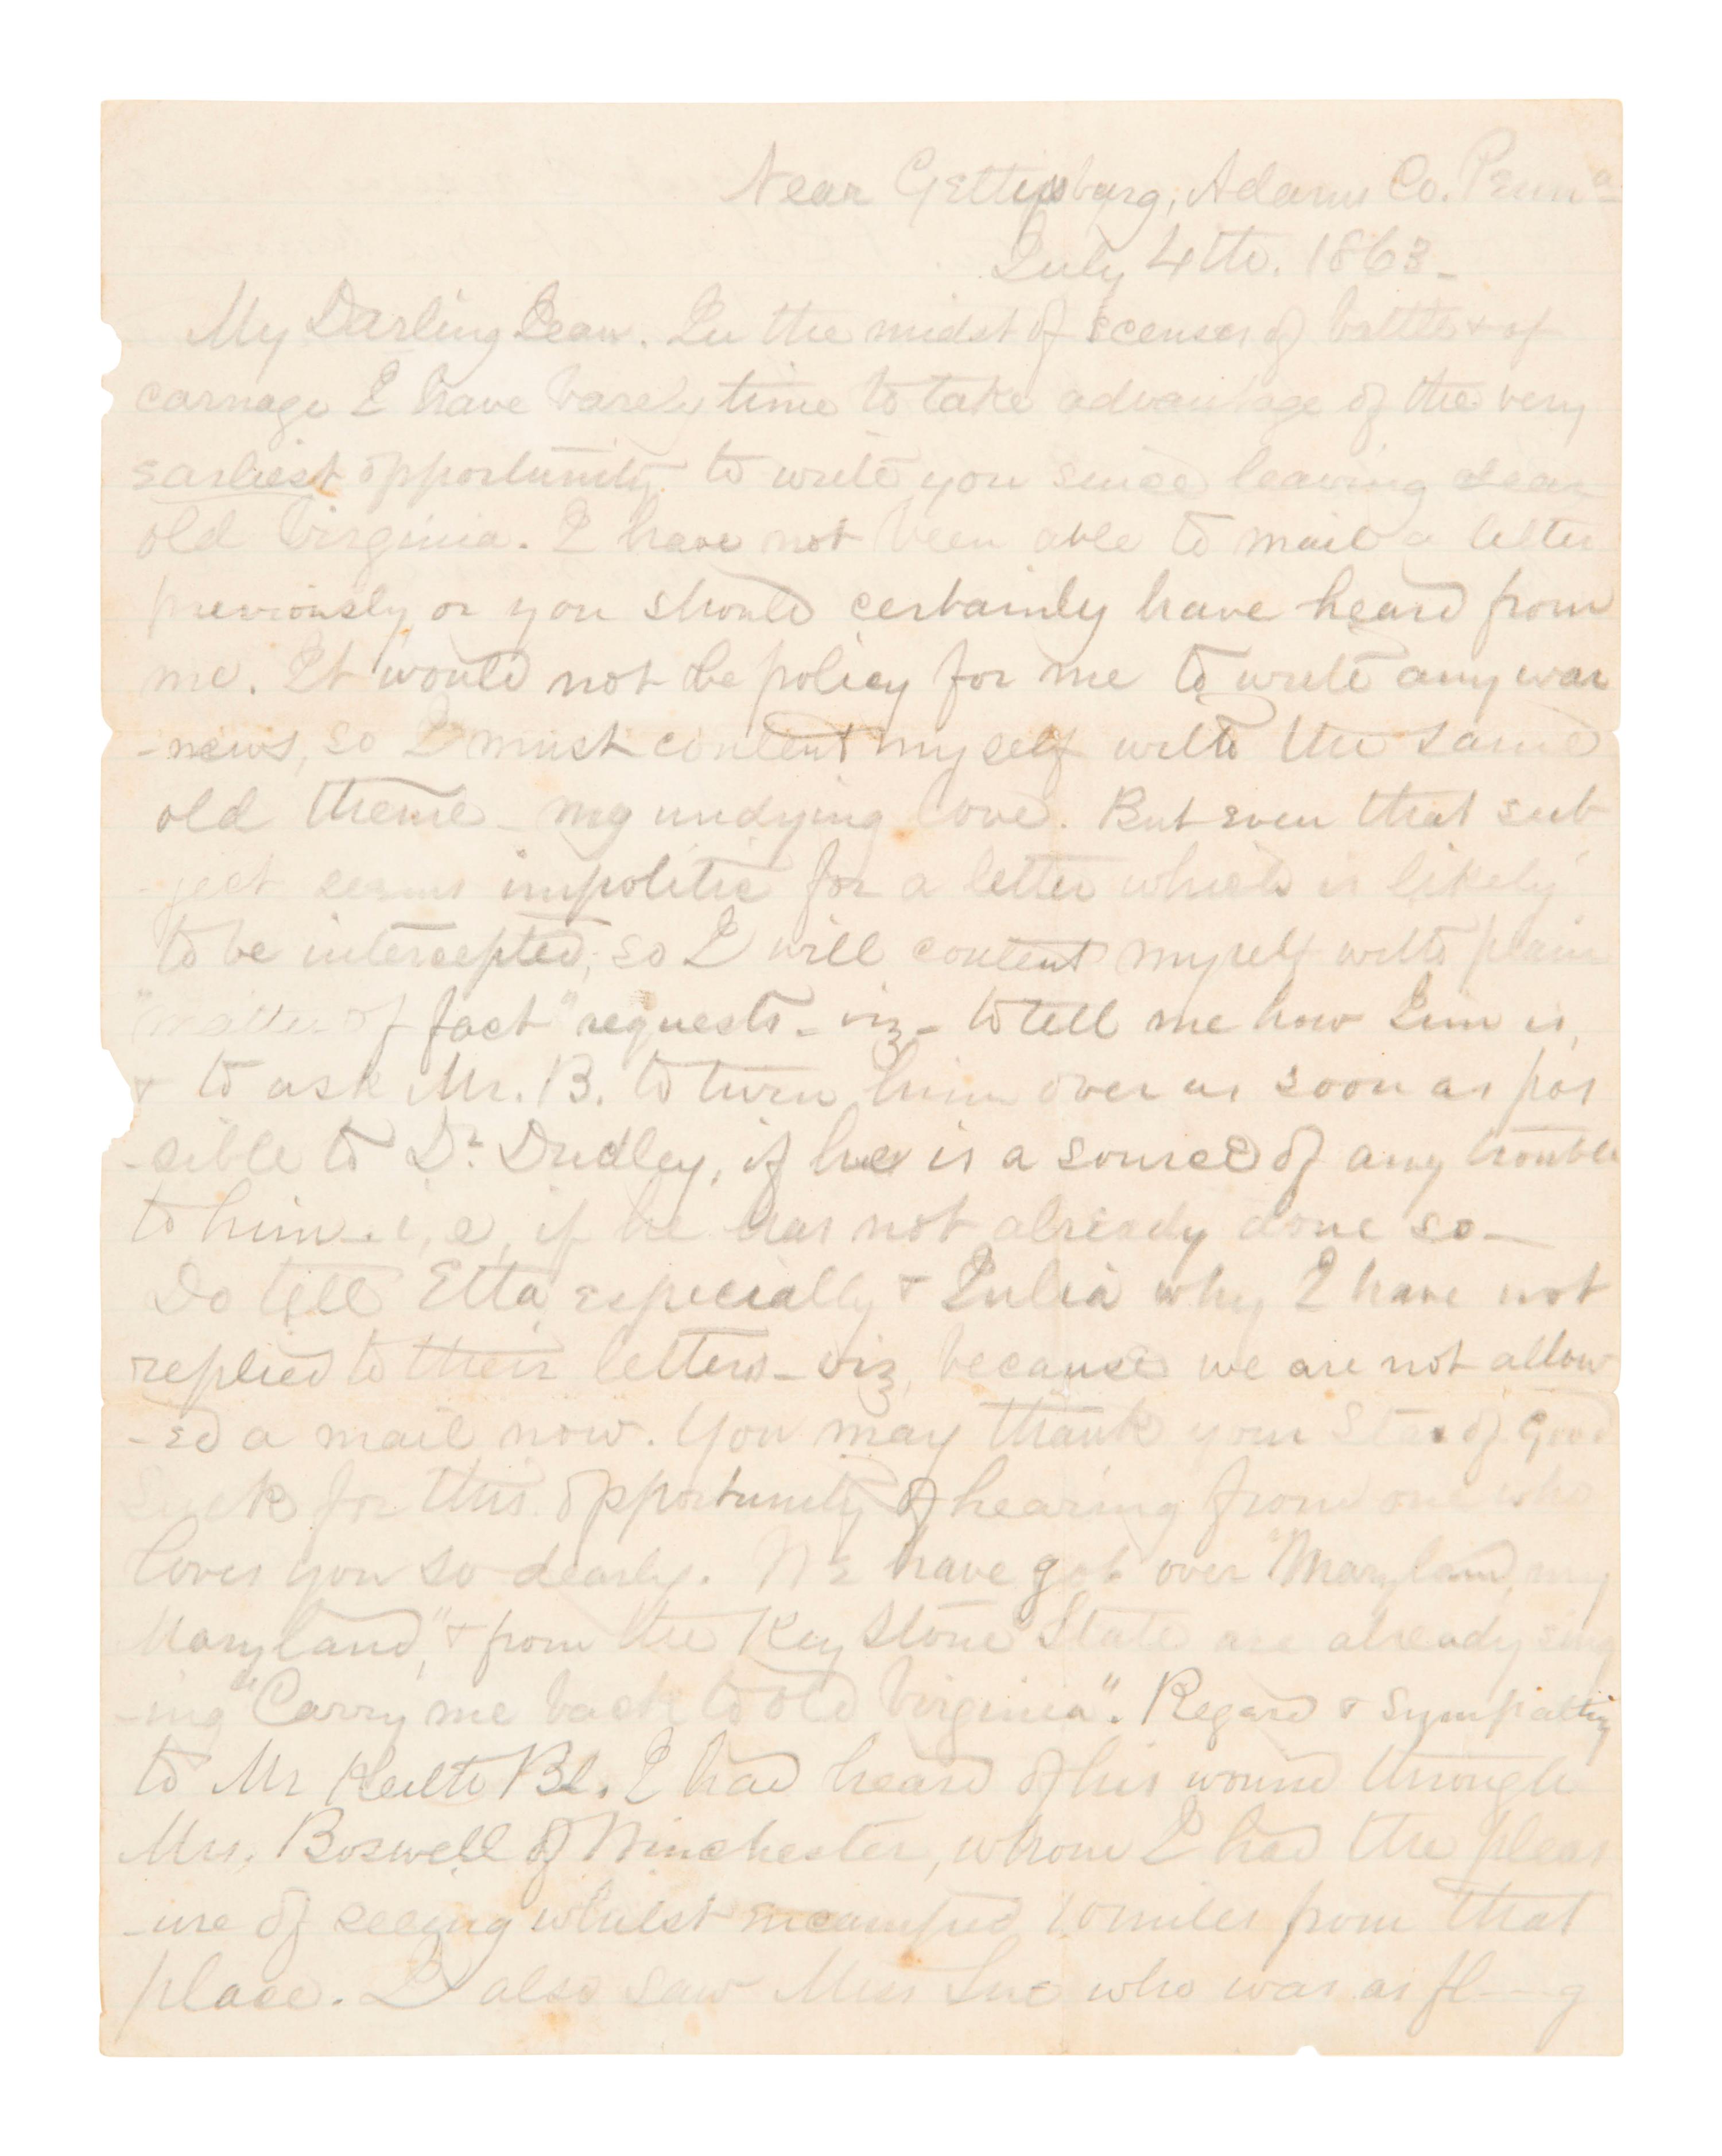 Near Gettysburg, Adams Co. Penna
July 4th. 1863-
My Darling Dear. In the midst of scenes of battle & of
carnage I have barely time to take advantage of the very
earliest opportunity to write you since leaving dear
old Virginia. I have not been able to mail a letter
previously or you should certainly have heard from
me. It would not be policy for me to write any war
-news, so I must content myself with the same
old theme - my undying love. But even that sub
-ject seems impolitic for a letter which is likely
to be intercepted, so I will content myself with plain
"matter of fact" requests - viz - to tell me how Jim is,
& to ask Mr. B. to turn him over as soon as pos
-sible to Dr. Dudley, if he is a source of any trouble
to him - i, e, if he has not already done so -
Do tell Etta especially & Julia why I have not
replied to their letters - viz, because we are not allow
-ed a mail now. You may thank your Star of good
Luck for this opportunity of hearing from one who
loves you so dearly. We have got over "Maryland, my
Maryland," & from the Key Stone State are already sing
-ing "Carry me back to old Virginia". Regard & Sympathy
to Mr Keith Bl. I had heard of his wound through
Mrs. Boswell of Winchester, whom I had the pleas
-ure of seeing whilst encamped 10 miles from that
place. I also saw Miss Sue who was as fl---g